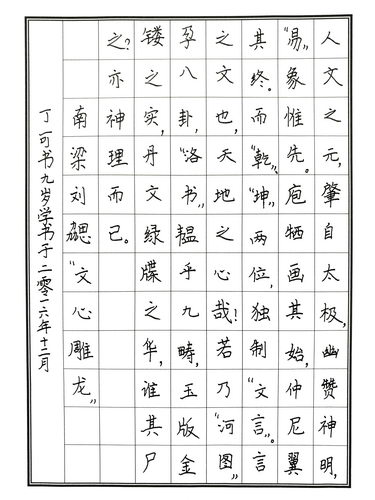 人文之元,肇自太极,幽赞神明,
“易”象惟先。庖牺画其始,仲尼翼
其终。而“乾”、“坤”两位,独制“文言”。言
之文也,天地之心哉!若乃“河图”
孕八卦,“洛书”韫乎九畴,玉版金
镂之实,丹文绿牒之华,谁其尸
之?亦神理而已。
南梁刘勰“文心雕龙”
丁一可书九岁学书于二零一六年十二月